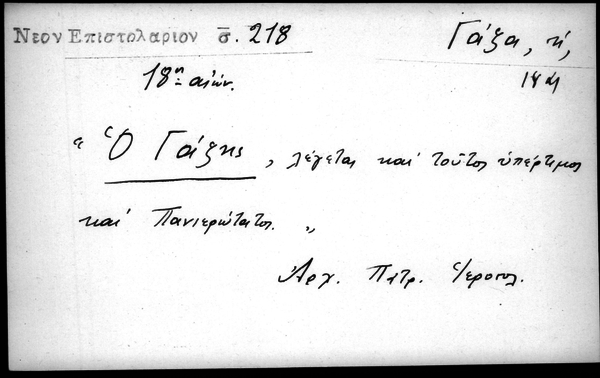 Νεον Επιστολαριον σ̅. 218
Γάζα, ἡ,
18η αἰών.
" Ὁ Γάζης, λέγεται καὶ τοῦτος ὑπέρτιμος
καὶ Πανιερώτατος. "
Ἀρχ. Πατρ. Ἱεροσολ.